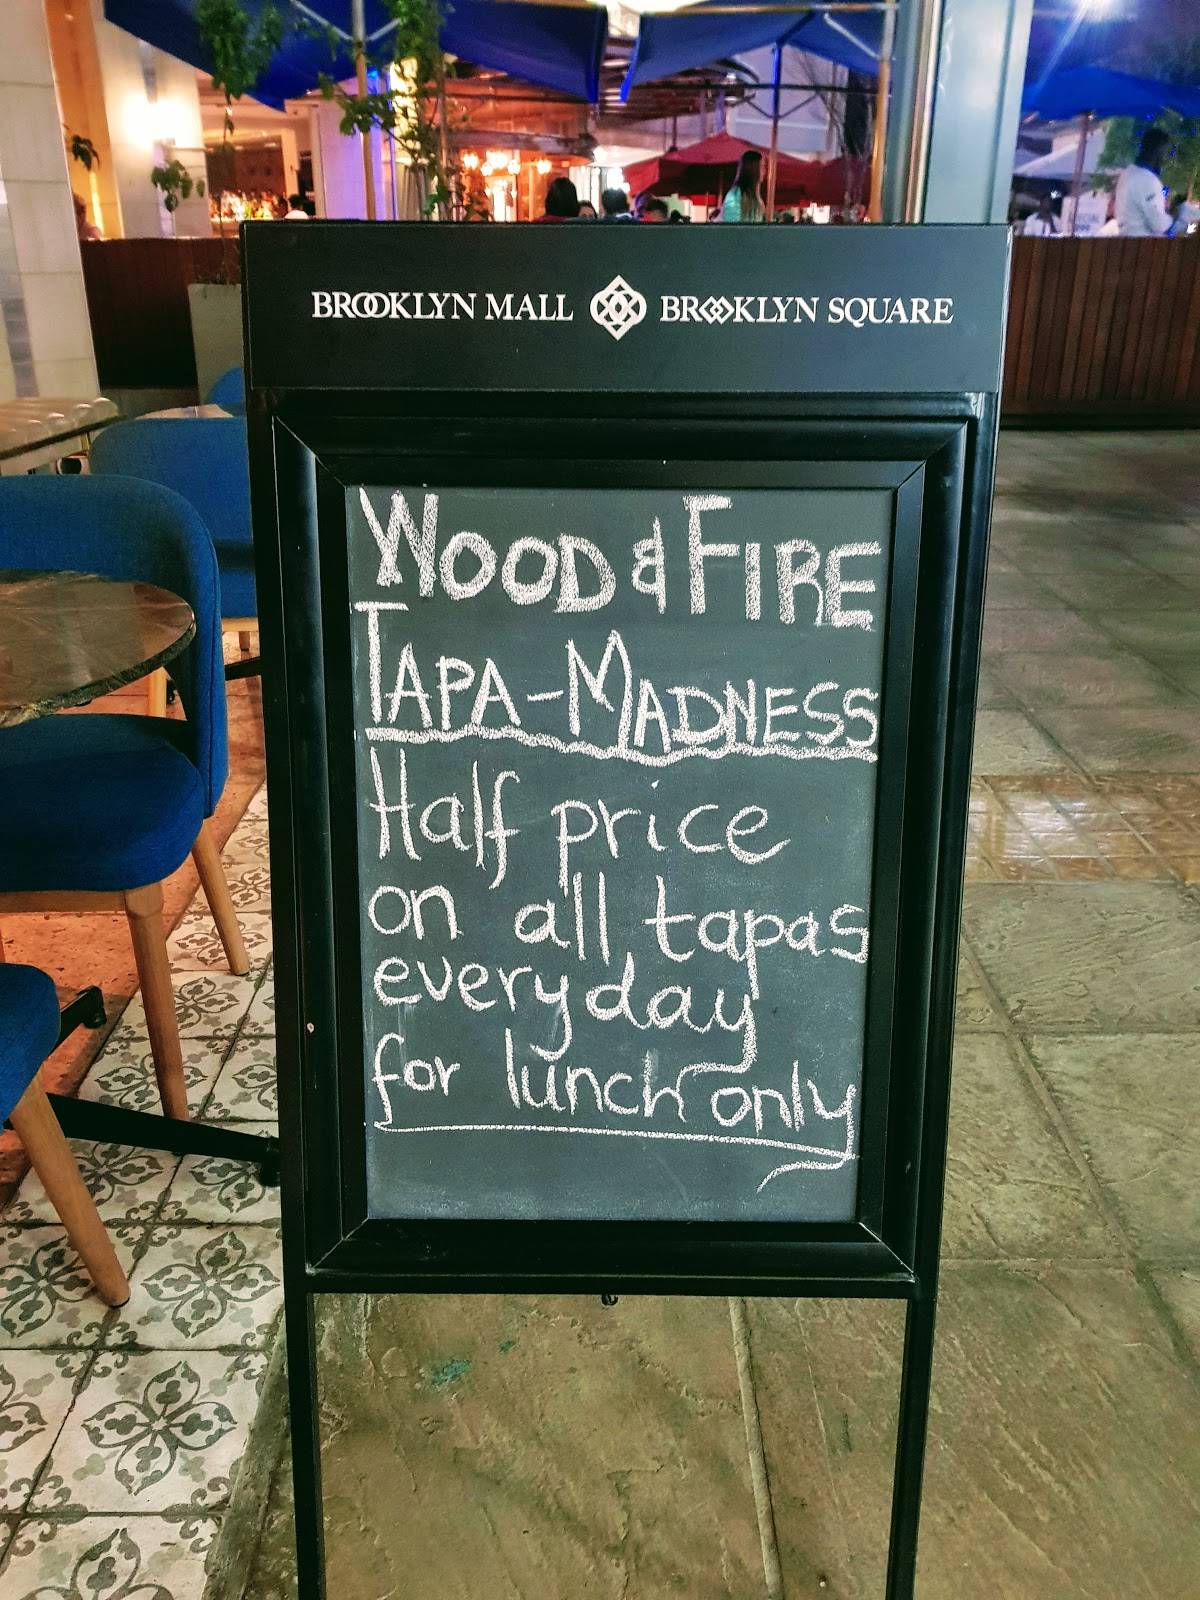 BROOKLYN MALL BROOKLYN SQUARE
WOOD & FIRE
TAPA-MADNESS
Half price
on all tapas
everyday
for lunch only